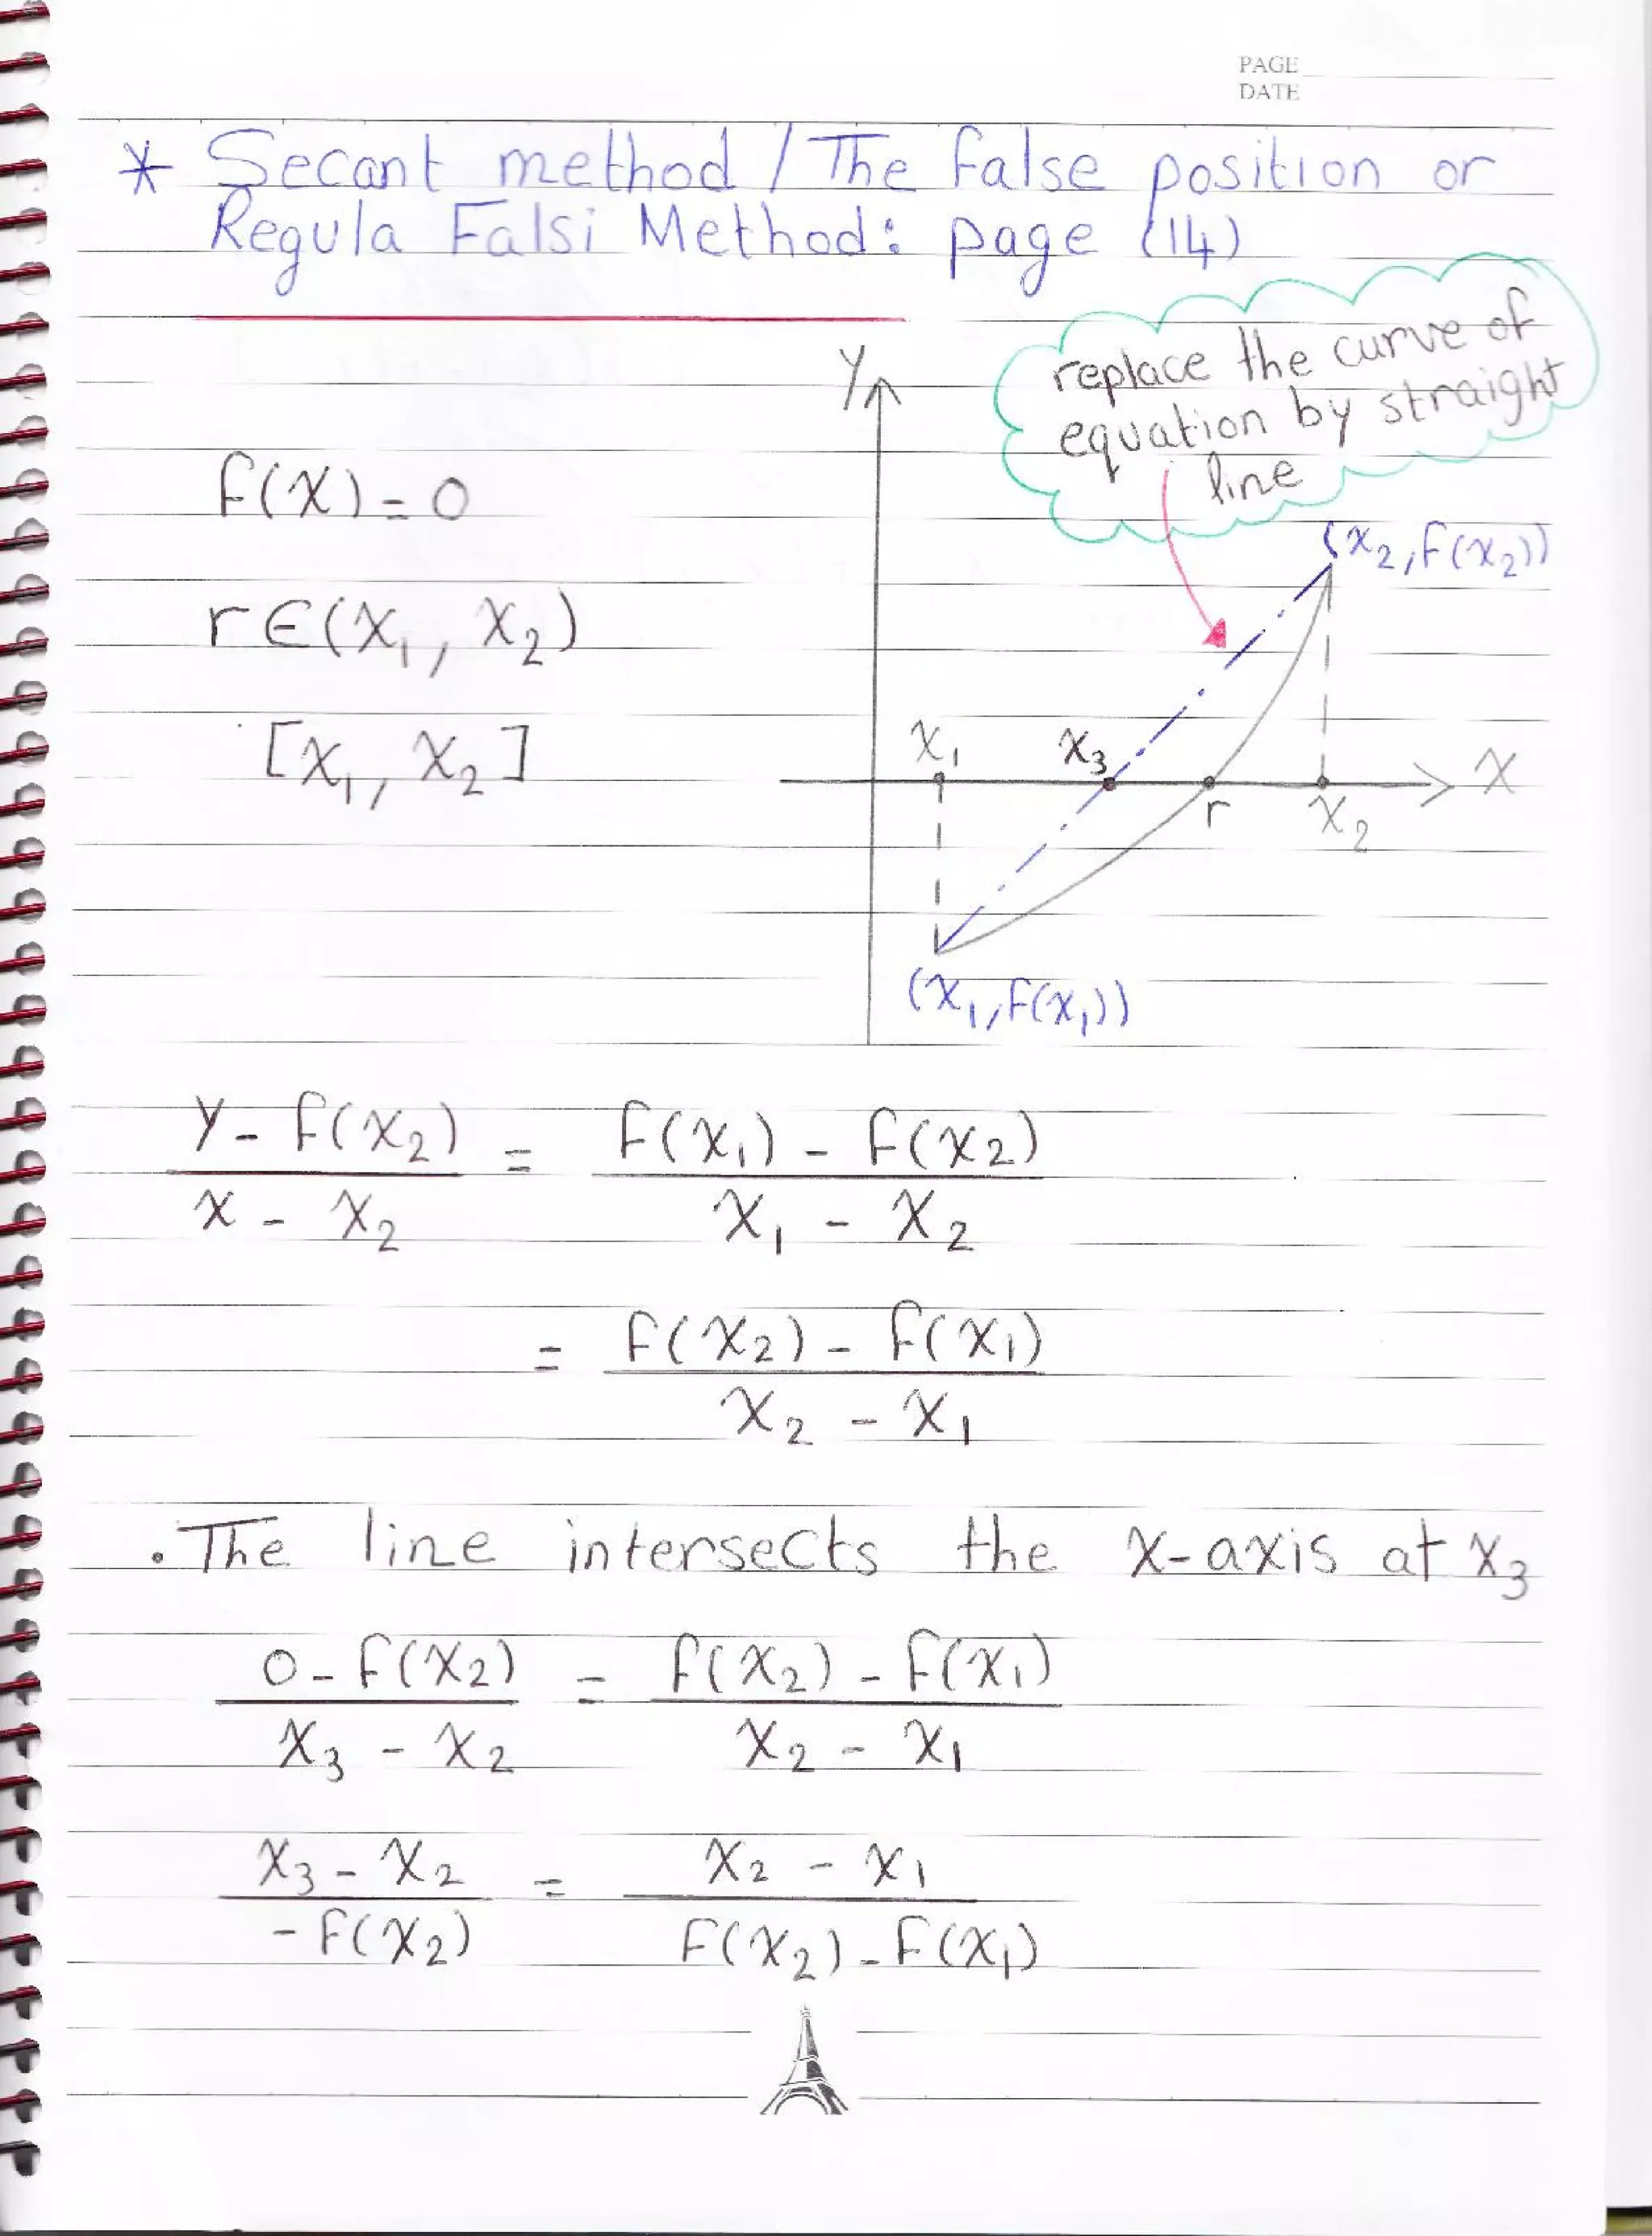 PAGE
DATE
* Secant method / The false position or
Regula Falsi Method: page (14)
replace the curve of
equation by straight
line
Y
f(x) = 0
(x₂, f(x₂))
r ∈ (x₁, x₂)
[x₁, x₂]
x₁ x₃ r x₂ X
(x₁, f(x₁))
y - f(x₂) / x - x₂ = f(x₁) - f(x₂) / x₁ - x₂
= f(x₂) - f(x₁) / x₂ - x₁
. The line intersects the x-axis at x₃
0 - f(x₂) / x₃ - x₂ = f(x₂) - f(x₁) / x₂ - x₁
x₃ - x₂ / - f(x₂) = x₂ - x₁ / f(x₂) - f(x₁)